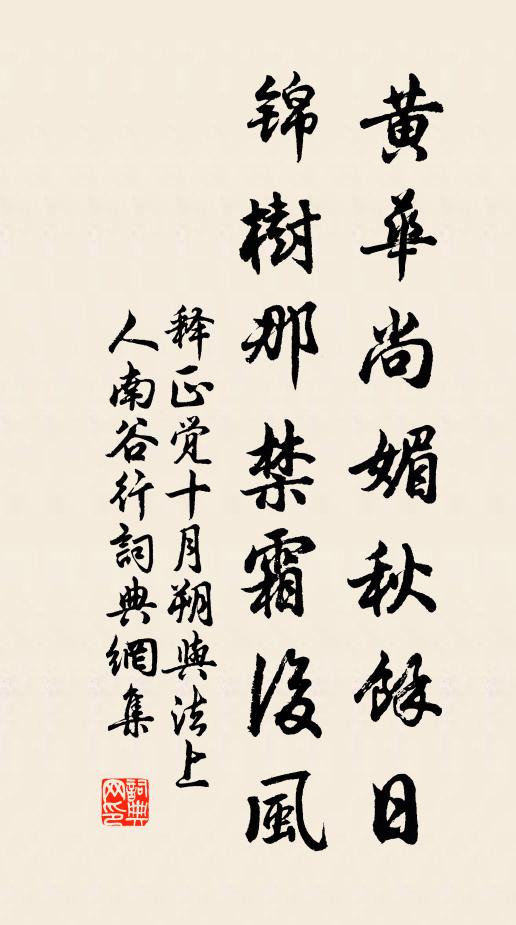 黄華尚媚秋餘日
錦樹那禁霜後風
释正覺十月朔與法上
人南谷行詞典網集
詞典网印